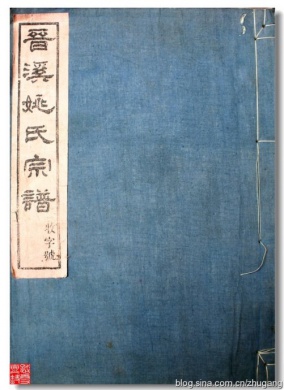 晉溪姚氏宗譜
blog.sina.com.cn/zhugang